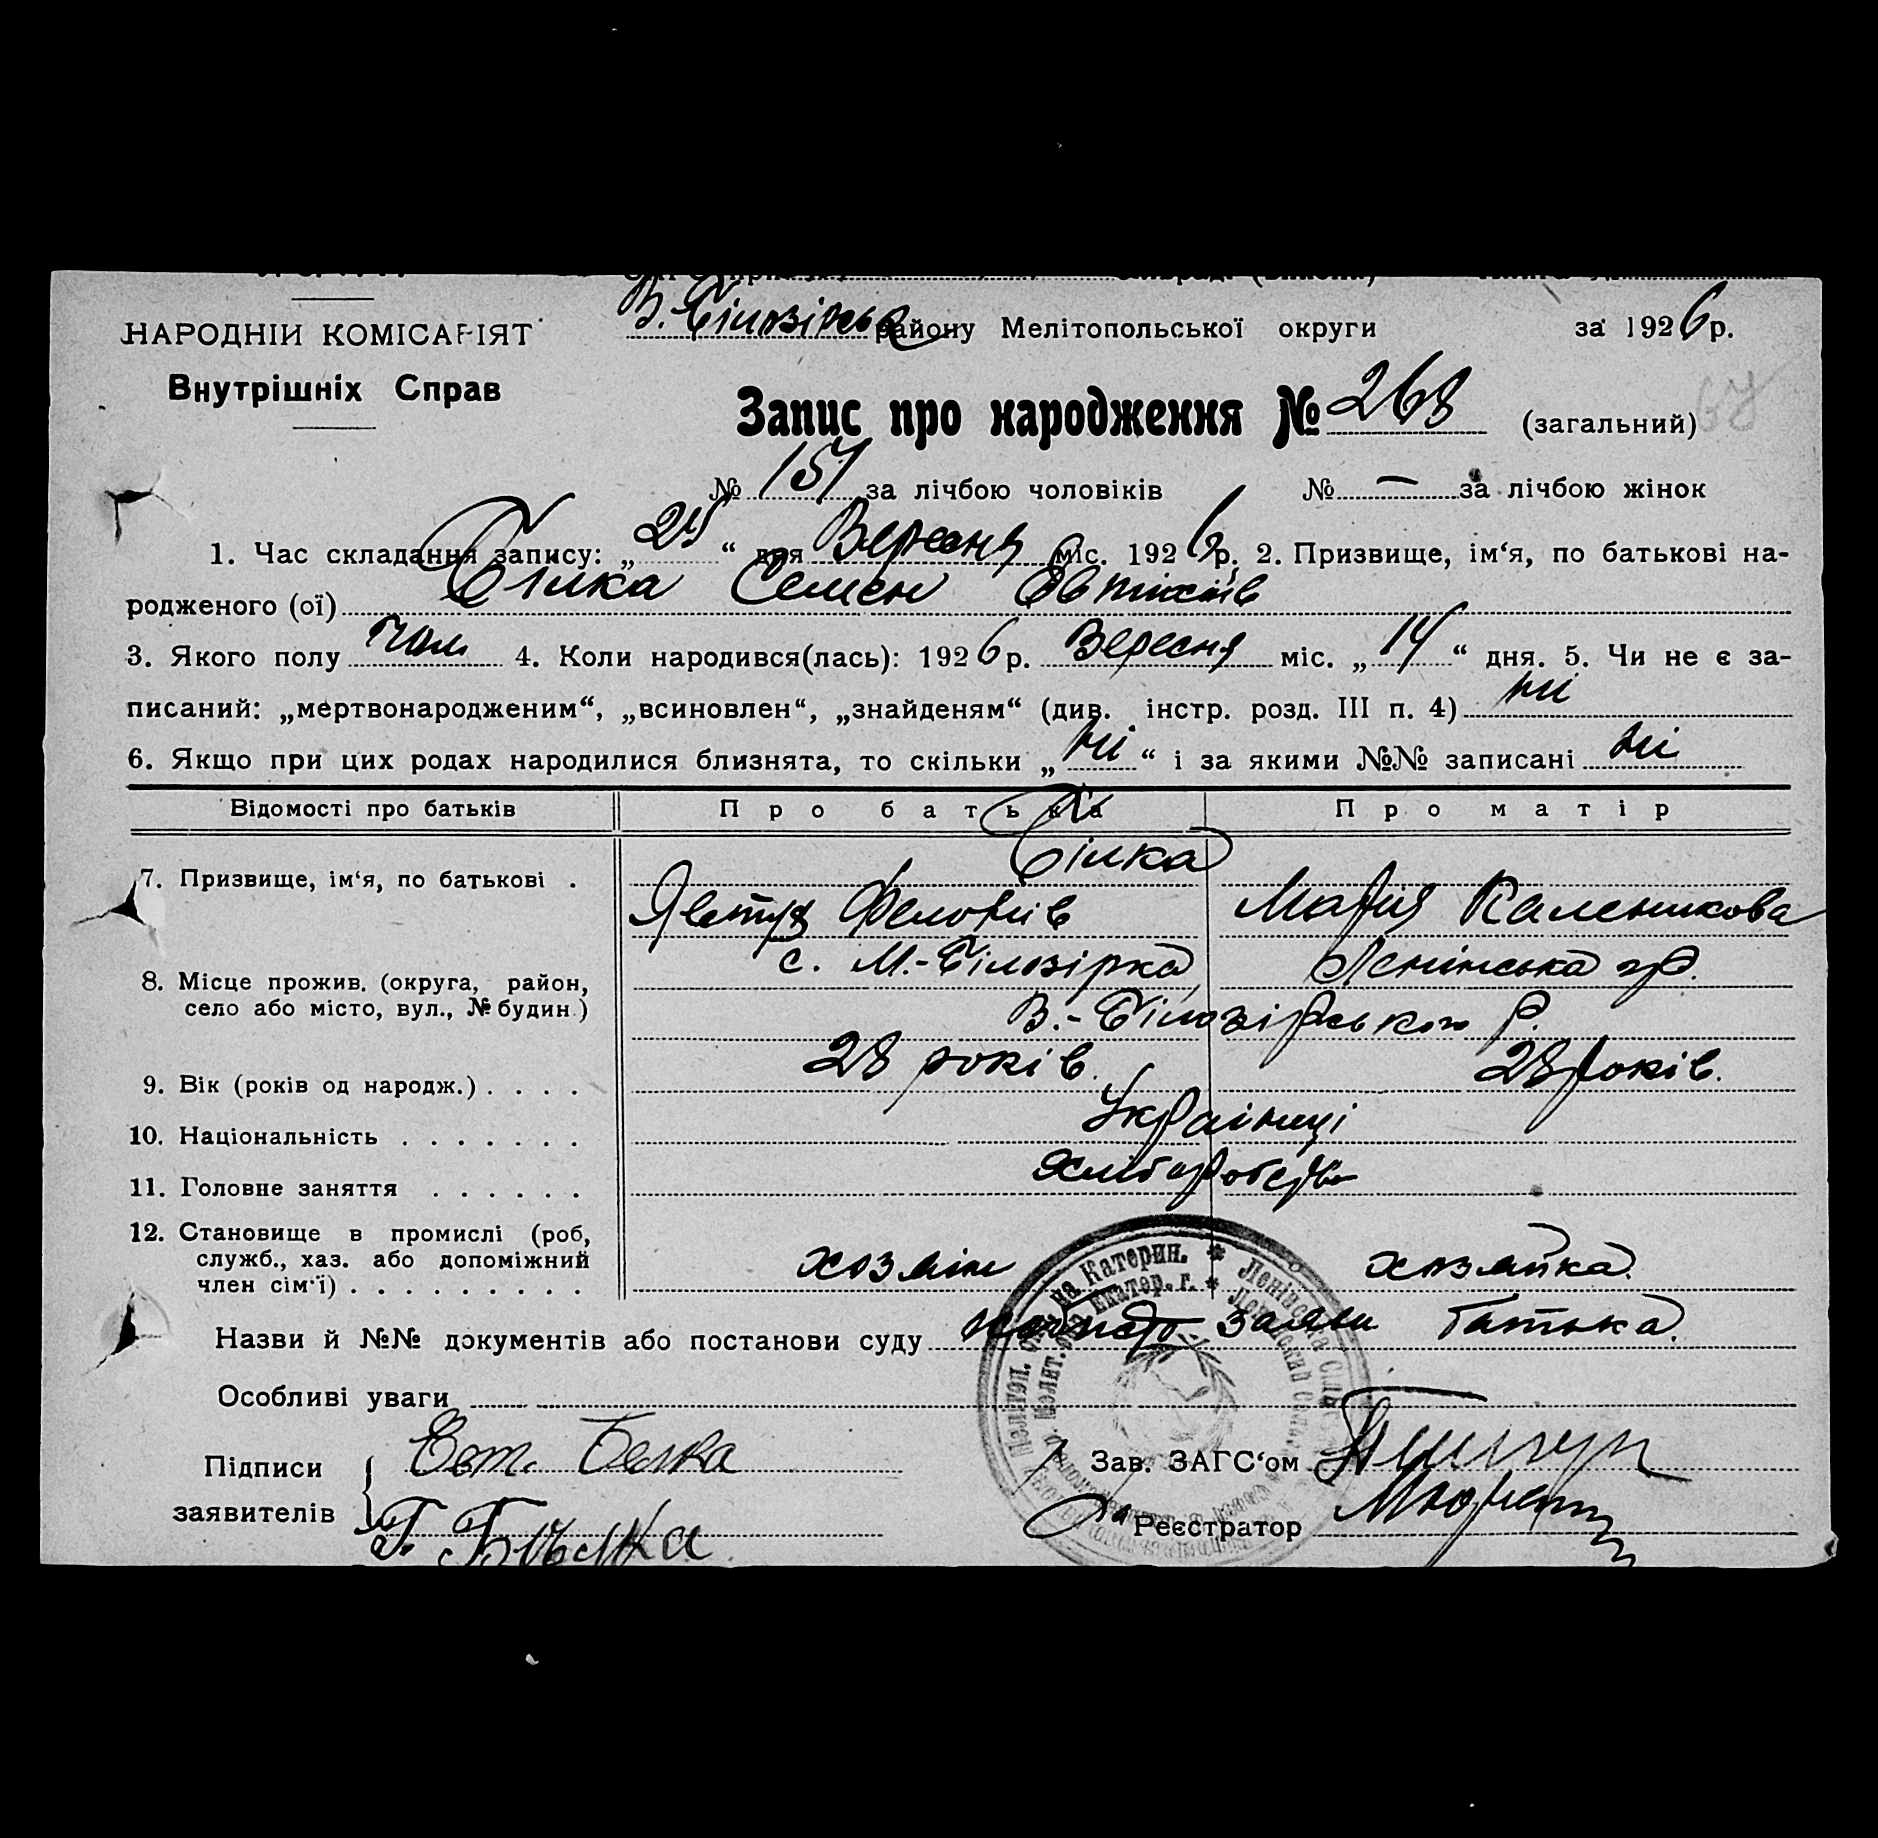 В. Білозірськ району Мелітопольської округи за 1926 р.
НАРОДНІЙ КОМІСАРІЯТ
Внутрішніх Справ
Запис про народження № 268 (загальний) 67
№ 151 за лічбою чоловіків № — за лічбою жінок
1. Час складання запису: „ “ дня Вересня міс. 1926 р. 2. Призвище, ім‘я, по батькові на-
родженого (ої) Білка Семен Євтихіїв
3. Якого полу чол. 4. Коли народився(лась): 1926 р. Вересня міс. „14“ дня. 5. Чи не є за-
писаний: „мертвонародженим“, „всиновлен“, „знайденям“ (див. інстр. розд. III п. 4) ні
6. Якщо при цих родах народилися близнята, то скільки „ні“ і за якими №№ записані ні
Відомості про батьків Про батька Про матір
Білка
7. Призвище, ім‘я, по батькові .
Марія Каленикова
8. Місце прожив. (округа, район, с. М.-Білозірка Ленінська
село або місто, вул., № будин.)
В.-Білозірського Р.
9. Вік (років од народж.) . . . . 28 років. 28 років.
10. Національність . . . . . . . Українці
11. Головне заняття . . . . . .
12. Становище в промислі (роб,
служб., хаз. або допоміжний хозяїн хозяйка.
член сім‘ї) . . . . . . . . .
Назви й №№ документів або постанови суду заяви батька.
Особливі уваги
Підписи Евт. Белка Зав. ЗАГС‘ом
заявителів Г. Бълка Реєстратор